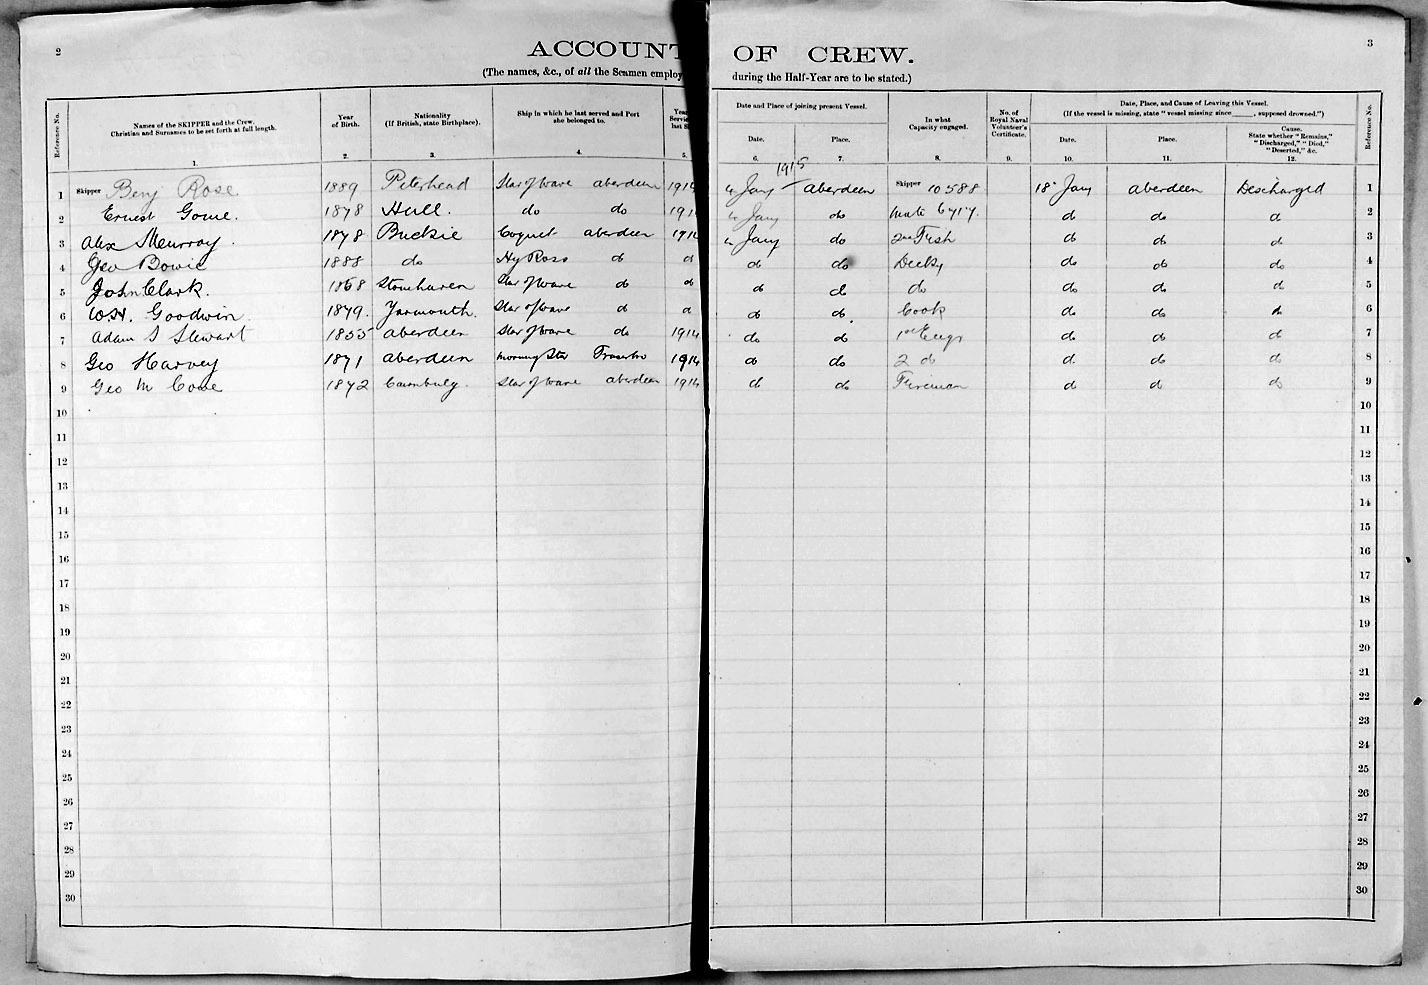 2
ACCOUNT OF CREW.
3
(The names, &c., of all the Seamen employ during the Half-Year are to be stated.)
Reference No.
Names of the SKIPPER and the Crew.
Christian and Surnames to be set forth at full length.
Year of Birth.
Nationality
(If British, state Birthplace).
Ship in which he last served and Port she belonged to.
Date and Place of joining present Vessel.
Date.
Place.
In what Capacity engaged.
No. of Royal Naval Volunteer's Certificate.
Date, Place, and Cause of Leaving this Vessel.
(If the vessel is missing, state "vessel missing since____, supposed drowned.")
Date.
Place.
Cause.
State whether "Remains," "Discharged," "Died," "Deserted," &c.
Reference No.
1. 2. 3. 4. 5. 6. 7. 8. 9. 10. 11. 12.
1915
1 Skipper Benj Rose 1889 Peterhead Star of Wave aberdeen 1914 4 Jany aberdeen Skipper 10588 18 Jany aberdeen Discharged 1
2 Ernest Gowe. 1878 Hull. do do 191 4 Jany do Mate 6717. do do d 2
3 Alex Murray. 1878 Buckie Coquet aberdeen 1914 4 Jany do 2nd Fish do do d 3
4 Geo Bowie 1888 do Hy Ross d d do do Decky do do do 4
5 John Clark. 1868 Stonehaven Star of Wave d d do d do do do d 5
6 W.H. Goodwin. 1879. Yarmouth. Star of Wave d d do do. Cook do do 6
7 Adam S Stewart 1855 aberdeen Star of Wave do 1914 do do 1st Engr d do d 7
8 Geo Harvey 1871 aberdeen Morning Star Fraserbro 1914 do do 2 d d. do d 8
9 Geo M Cowe 1872 Cairnbulg. Star of Wave aberdeen 1914 d do Fireman d d d 9
10 10
11 11
12 12
13 13
14 14
15 15
16 16
17 17
18 18
19 19
20 20
21 21
22 22
23 23
24 24
25 25
26 26
27 27
28 28
29 29
30 30